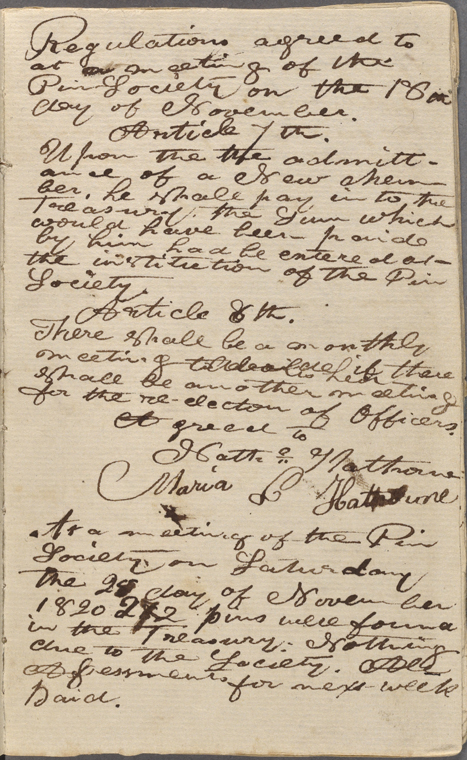 Regulations agreed to
at a meeting of the
Pin Society on the 18th
day of November.
Article 7th.
Upon the the admitt-
ance of a New Mem
ber, he shall pay in to the
Treasury, the Sum which
would have been paide
by him had he entered at
the institution of the Pin
Society.
Article 8th.
There shall be a monthly
meeting to decide if there
shall be another meeting
for the re-election of Officers.
Agreed to
Nath.e Hathorne
Maria L Hathorne
At a meeting of the Pin
Society, on Saturday
the 25 day of November
1820 272 pins were found
in the Treasury. Nothing
due to the Society. All
Assessments for next week
paid.